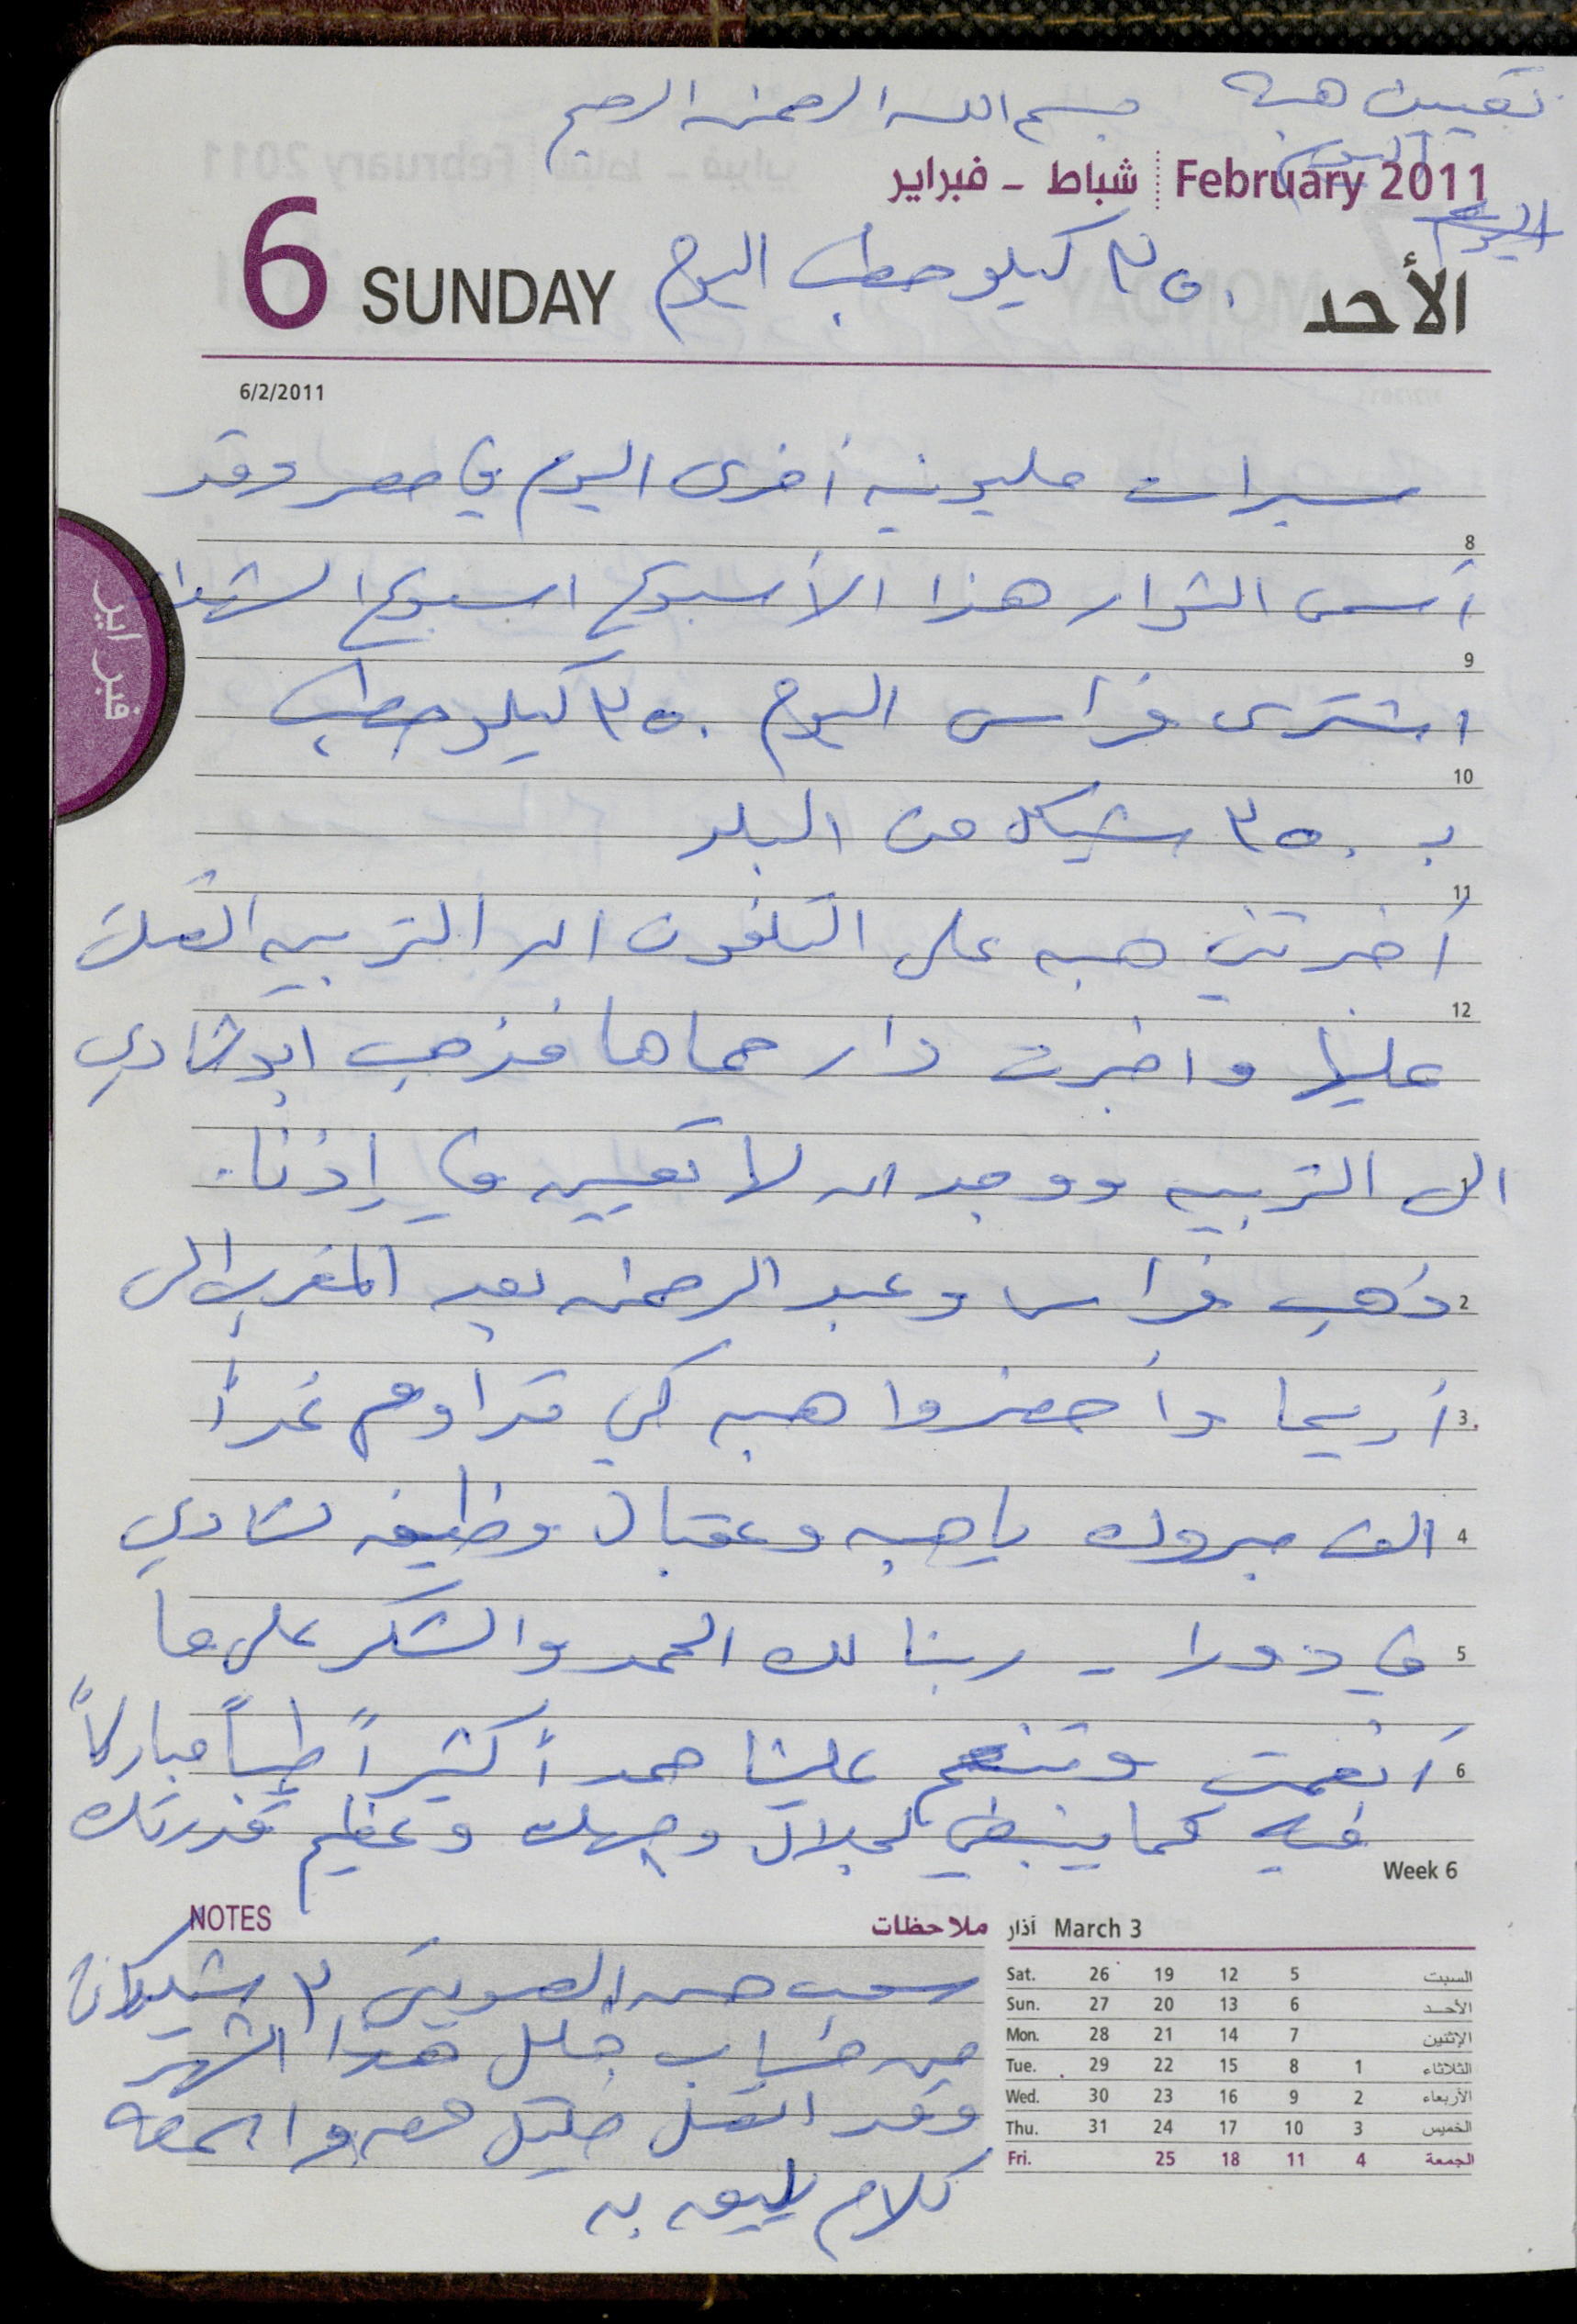 تعيين هبه
بسم الله الرحمن الرحيم
اليوم
February 2011 شباط - فبراير
اليوم
6 SUNDAY
٣٥٠ كيلو حطب اليوم
الأحد
6/2/2011
مسيرات مليونيه أخرى اليوم في مصر وقد
8
أسمى الثوار هذا الأسبوع اسبوع الشهداء
9
اشترى فراس اليوم ٣٥٠ كيلو حطب
10
بـ ٣٥٠ شيكل من البلد
11
أخبرتني هبه على التلفون ان التربيه اتصلت
12
عليها واخبرت دار حماها فذهب ابو شادي
الى التربيه ووجد ان لا تعيين في إذنا.
1
ذهب فراس وعبد الرحمن بعد المغرب الى
2
أريحا وأحضروا هبه كي تداوم غداً
3
الف مبروك يا هبه وعقبال وظيفه لشادي
4
في دورا - ربنا لك الحمد والشكر على ما
5
أنعمت وتنعم علينا حمداً كثيراً طيباً مباركاً
6
فيه كما ينبغي لجلال وجهك وعظيم قدرتك
Week 6
NOTES ملاحظات
سحب حسن الصويتي ٣ شيكات
من حساب خليل هذا الشهر
وقد اتصل خليل معه واسمعه
كلام يليق به
آذار March 3
Sat. 26 19 12 5 السبت
Sun. 27 20 13 6 الأحد
Mon. 28 21 14 7 الإثنين
Tue. 29 22 15 8 1 الثلاثاء
Wed. 30 23 16 9 2 الأربعاء
Thu. 31 24 17 10 3 الخميس
Fri. 25 18 11 4 الجمعة
فبراير